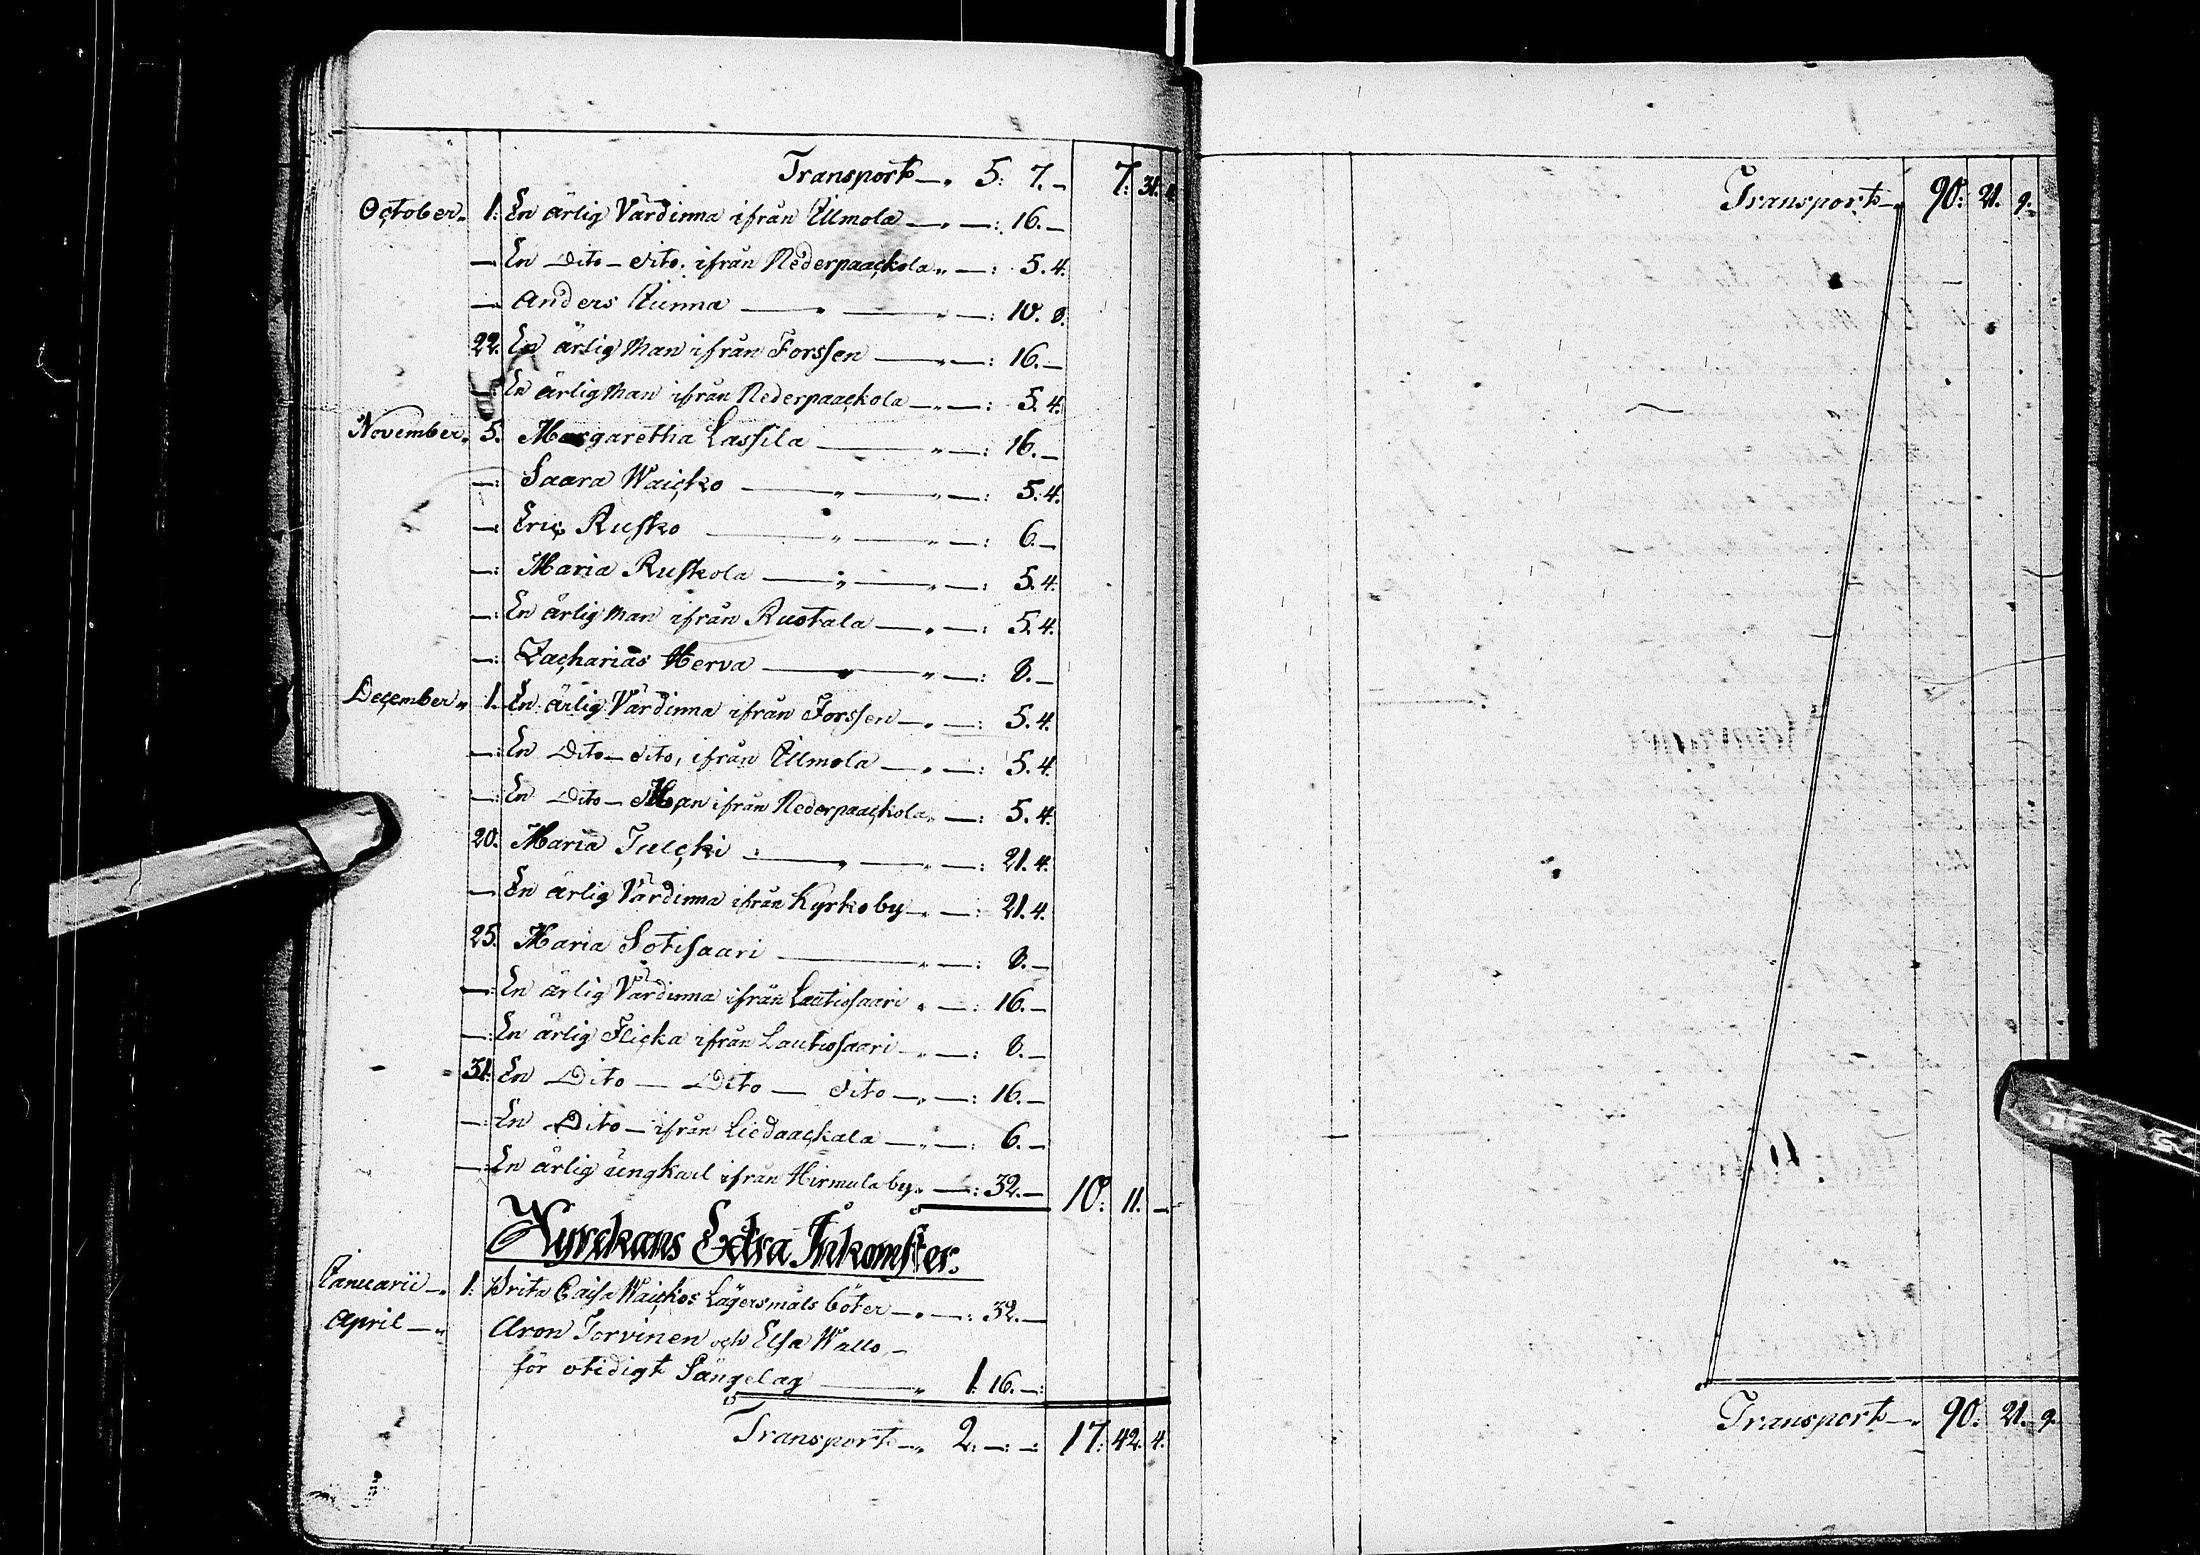 Transport —„ 5: 7. — 7: 31. 4.
October„ 1: En ärlig Värdinna ifrån Ällmola —„ —: 16. —
— En Dito — dito, ifrån Nederpaackola„ —: 5. 4.
— Anders Kunna — „ — „ —: 10. 8.
22. En ärlig Man ifrån Forssen —„ —: 16. —
En ärlig Man ifrån Nederpaackola —„ —: 5. 4.
November„ 5. Margaretha Lassila — „ —: 16. —
—: Saara Waicko — „ — „ —: 5. 4.
—: Eric Rusko — „ — „ —: 6. —
—: Maria Ruskola — „ — „ —: 5. 4.
—: En ärlig Man ifrån Ruotala —„ —: 5. 4.
—: Zacharias Herva — „ — „ —: 8. —
December„ 1. En ärlig Värdinna ifrån Forssen —„ —: 5. 4.
—: En Dito — dito, ifrån Ällmola —„ —: 5. 4.
—: En Dito — Man ifrån Nederpaackola„ —: 5. 4.
20. Maria Julcki — „ — „ —: 21. 4.
— En ärlig Värdinna ifrån Kyrkoby —„ —: 21. 4.
25. Maria Sotisaari — „ —: 8. —
—: En ärlig Värdinna ifrån Lautiosaari „ —: 16. —
—: En ärlig Flicka ifrån Lautiosaari —„ —: 8. —
31. En Dito — Dito — dito —„ —: 16. —
—: En Dito — ifrån Liedaackala —„ —: 6. —
— En ärlig ungkarl ifrån Hirmula by„ —: 32. — 10: 11. —
Kyrckans Extra Inkomster.
Januarii —„ 1. Brita Caisa Waickos Lägersmåls böter —„ —: 32. —
April —„ Aron Torvinen och Elsa Wallo, —
för otidigt Sängelag — „ 1: 16. —:
Transport —„ 2: —: —: 17: 42. 4.
Transport —„ 90: 21. 9.
Transport —„ 90: 21. 9.